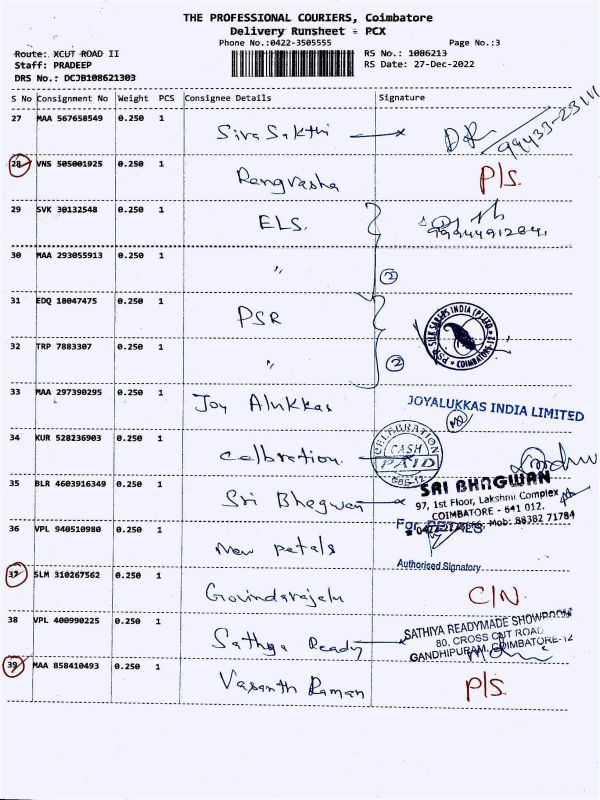 THE PROFESSIONAL COURIERS, Coimbatore
Delivery Runsheet = PCX
Phone No.:0422-3505555 Page No.:3
Route: XCUT ROAD II RS No.: 1086213
Staff: PRADEEP RS Date: 27-Dec-2022
DRS No.: DCJB108621303
S No Consignment No Weight PCS Consignee Details Signature
27 MAA 567658549 0.250 1 Siva Sakthi 99433-23111
28 VNS 505001925 0.250 1 Rangvasha P/S.
29 SVK 30132548 0.250 1 ELS.
30 MAA 293055913 0.250 1 " 2
31 EDQ 18047475 0.250 1 PSR PSR SILK SAREES INDIA (P) LTD COIMBATORE-12
32 TRP 7883307 0.250 1 " 2
33 MAA 297390295 0.250 1 Joy Alukkas JOYALUKKAS INDIA LIMITED
34 KUR 528236903 0.250 1 Calbration CELEBRATION CASH PAID CBE-12
35 BLR 4603916349 0.250 1 Sri Bhagwan SRI BHAGWAN
97, 1st Floor, Lakshmi Complex
COIMBATORE - 641 012.
Mob: 88382 71784
36 VPL 940510980 0.250 1 New Petals For PETALS
Authorised Signatory
37 SLM 310267562 0.250 1 Govindarajalu C/N.
38 VPL 400990225 0.250 1 Sathya Ready SATHIYA READYMADE SHOWROOM
80, CROSS CUT ROAD
GANDHIPURAM, COIMBATORE-12
39 MAA 858410493 0.250 1 Vasanth Raman P/S.